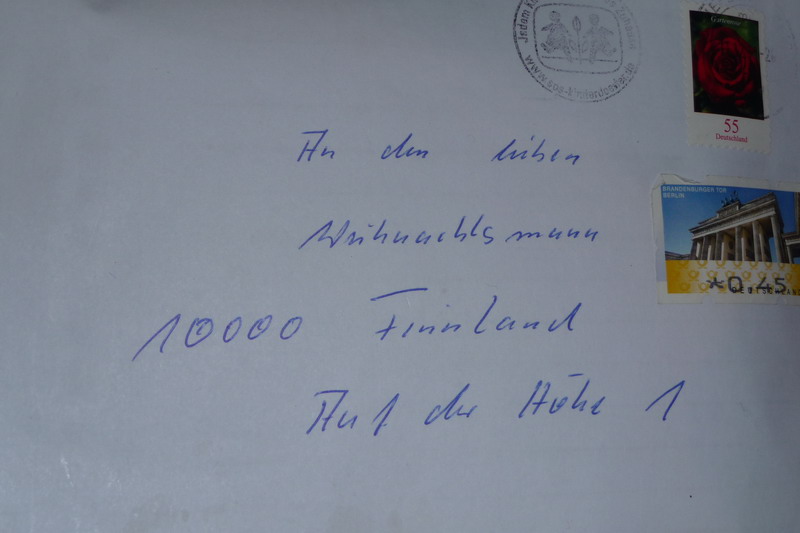 Jedem
www.sos-kinderdoerfer.de
Gartenrose
55
Deutschland
BRANDENBURGER TOR
BERLIN
*0,45
DEUTSCHLAND
An den lieben
Weihnachtsmann
10000 Finnland
Auf der Höhe 1